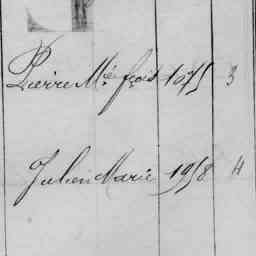 Pierre Mie frçois 1075 3
Julien Marie 1958 4